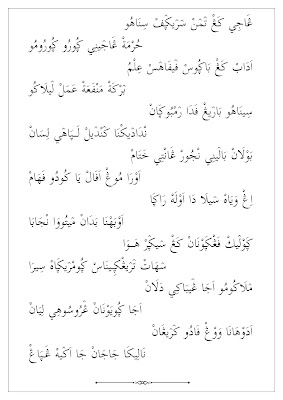 غَاجِي كَڠْ تَمَنْ سَرَيكَيْفْ سِنَاهُو
حُرْمَةْ غَاجَيْنِي ڮُورُو ڮُورُومُو
اَدَابْ كَڠْ بَاڮُوسْ فَيفَاهَسْ عِلْمُ
بَرْكَةْ مَنْفَعَةْ عَمَلْ لَيلَاكُو
سِينَاهُو بَارَيڠْ فَدَا رَمْبُوڮَانْ
تُدَادَيكْنَا كَنْدَيلْ لَيَاهَي لِسَانْ
بَوْلَانْ بَالَيْنِي نْجُورْ غَانْتِي خَتَامْ
اَوْرَا مُوڠْ اَفَالْ يَا كُودُو فَهَامْ
اِڠْ وَيَاهْ سَيلَا دَا اَوْلَهْ رَاڮَا
اَوْبَهْنَا بَدَانْ مَيتُووَا نْجَابَا
ڮَوْلَيكْ فَڠْكَوْنَانْ كَڠْ سَيكَيْرْ هَـوَا
سَهَاتْ تَرَيڠْڮَيْنَاسْ ڮُومْرَيڮَاهْ سِيرَا
مْلَاكُومُو اَجَا غَيْبَاكَي دَلَانْ
اَجَا ڮُويَوْنَانْ غْرُوسُوهِي لِيَانْ
اَدَوْهَانَا وَوْڠْ فَادُو كَرَيڠَانْ
نَالِيكَا جَاجَانْ جَا اَكَيهْ غَيَاڠْ